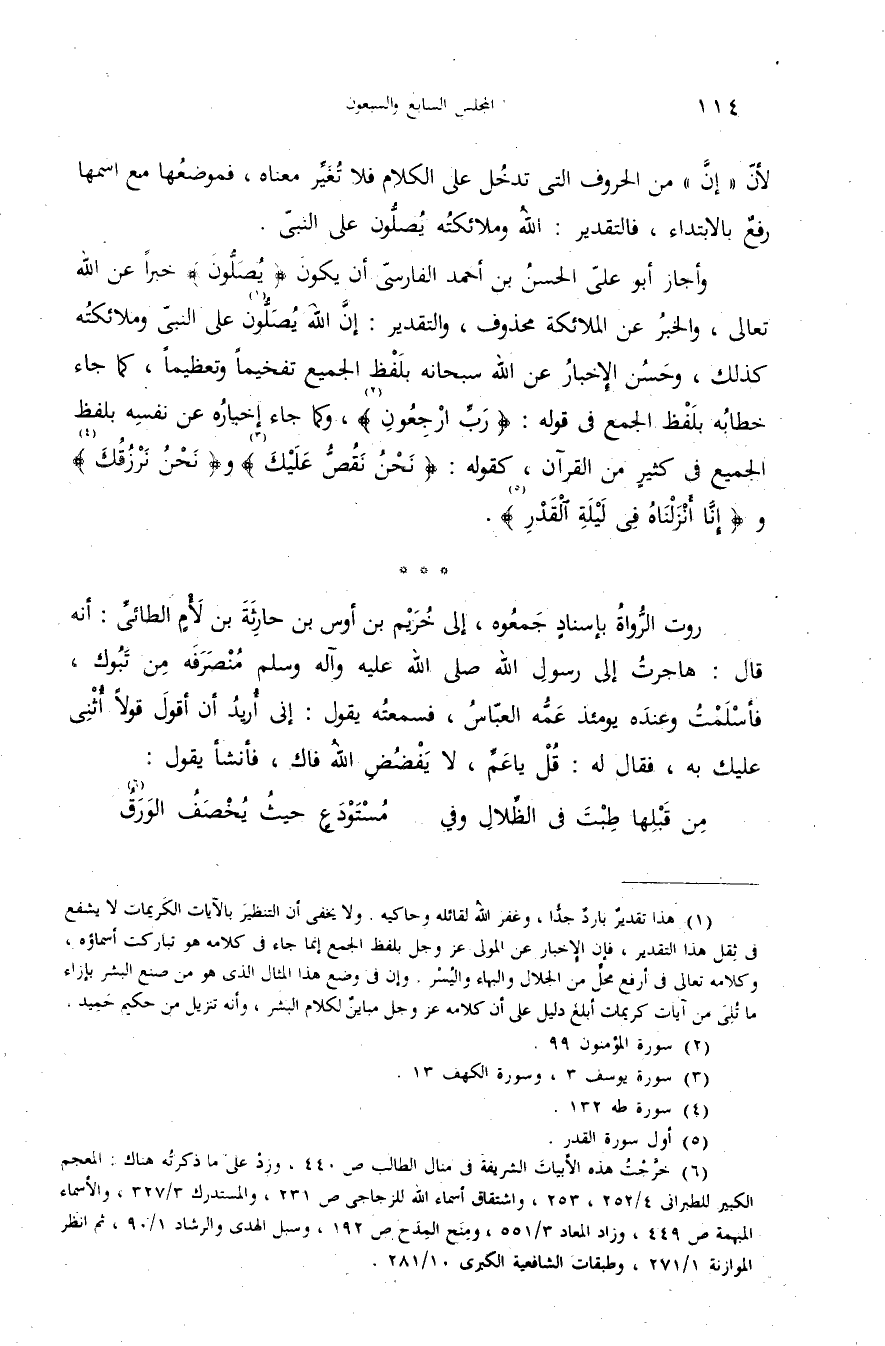 ١١٤ المجلس السابع والسبعون
لأنّ « إنَّ » من الحروف التى تدخُل على الكلام فلا تُغَيِّر معناه ، فموضعُها مع اسمها
رفعٌ بالابتداء ، فالتقدير : اللهُ وملائكتُه يُصلُّون على النبىّ .
وأجاز أبو علىّ الحسنُ بن أحمد الفارسىّ أن يكونَ ﴿ يُصَلُّونَ ﴾ خبراً عن الله
تعالى ، والخبرُ عن الملائكة محذوف ، والتقدير : إنَّ اللهَ يُصَلُّونَ على النبىّ وملائكتُه(١)
كذلك ، وحَسُن الإخبارُ عن الله سبحانه بلَفْظ الجميع تفخيماً وتعظيماً ، كما جاء
خطابُه بلَفْظ الجمع فى قوله : ﴿ رَبِّ ارْجِعُونِ ﴾(٢) ، وكما جاء إخبارُه عن نفسِه بلفظ
الجميع فى كثيرٍ من القرآن ، كقوله : ﴿ نَحْنُ نَقُصُّ عَلَيْكَ ﴾(٣) و﴿ نَحْنُ نَرْزُقُكَ ﴾(٤)
و ﴿ إِنَّا أَنْزَلْنَاهُ فِى لَيْلَةِ ٱلْقَدْرِ ﴾(٥) .
* * *
روت الرُّواةُ بإسنادٍ جَمعُوه ، إلى خُرَيْم بن أوس بن حارِثَةَ بن لَأْمٍ الطائىِّ : أنه
قال : هاجرتُ إلى رسولِ الله صلى الله عليه وآله وسلم مُنْصَرَفَه مِن تَبُوك ،
فأسْلَمْتُ وعندَه يومئذ عَمُّه العبّاسُ ، فسمعتُه يقول : إنى أُريدُ أن أقولَ قولاً أُثْنِى
عليك به ، فقال له : قُلْ ياعَمِّ ، لا يَفْضُضِ اللهُ فاك ، فأنشأ يقول :
مِن قَبْلِها طِبْتَ فى الظِّلالِ وفي مُسْتَوْدَعٍ حيثُ يُخْصَفُ الوَرَقُ(٦)
(١) هذا تقديرٌ باردٌ جدًّا ، وغفر اللهُ لقائله وحاكيه . ولا يخفى أن التنظيرَ بالآيات الكريمات لا يشفع
فى ثِقل هذا التقدير ، فإن الإخبار عن المولى عز وجل بلفظ الجمع إنما جاء فى كلامه هو تباركت أسماؤه ،
وكلامه تعالى فى أرفع محلٍّ من الجلال والبهاء واليُسْر . وإن فى وضع هذا المثال الذى هو من صنع البشر بإزاء
ما تُلِىَ من آيات كريمات أبلغَ دليل على أن كلامه عز وجل مباينٌ لكلام البشر ، وأنه تنزيل من حكيم حَمِيد .
(٢) سورة المؤمنون ٩٩ .
(٣) سورة يوسف ٣ ، وسورة الكهف ١٣ .
(٤) سورة طه ١٣٢ .
(٥) أول سورة القدر .
(٦) خرَّجْتُ هذه الأبياتَ الشريفة فى منال الطالب ص ٤٤٠ ، وزِدْ على ما ذكرتُه هناك : المعجم
الكبير للطبرانى ٢٥٢/٤ ، ٢٥٣ ، واشتقاق أسماء الله للزجاجى ص ٢٣١ ، والمستدرك ٣٢٧/٣ ، والأسماء
المبهمة ص ٤٤٩ ، وزاد المعاد ٥٥١/٣ ، ومِنَح المِدَح ص ١٩٢ ، وسبل الهدى والرشاد ٩٠/١ ، ثم انظر
الموازنة ٢٧١/١ ، وطبقات الشافعية الكبرى ٢٨١/١٠ .